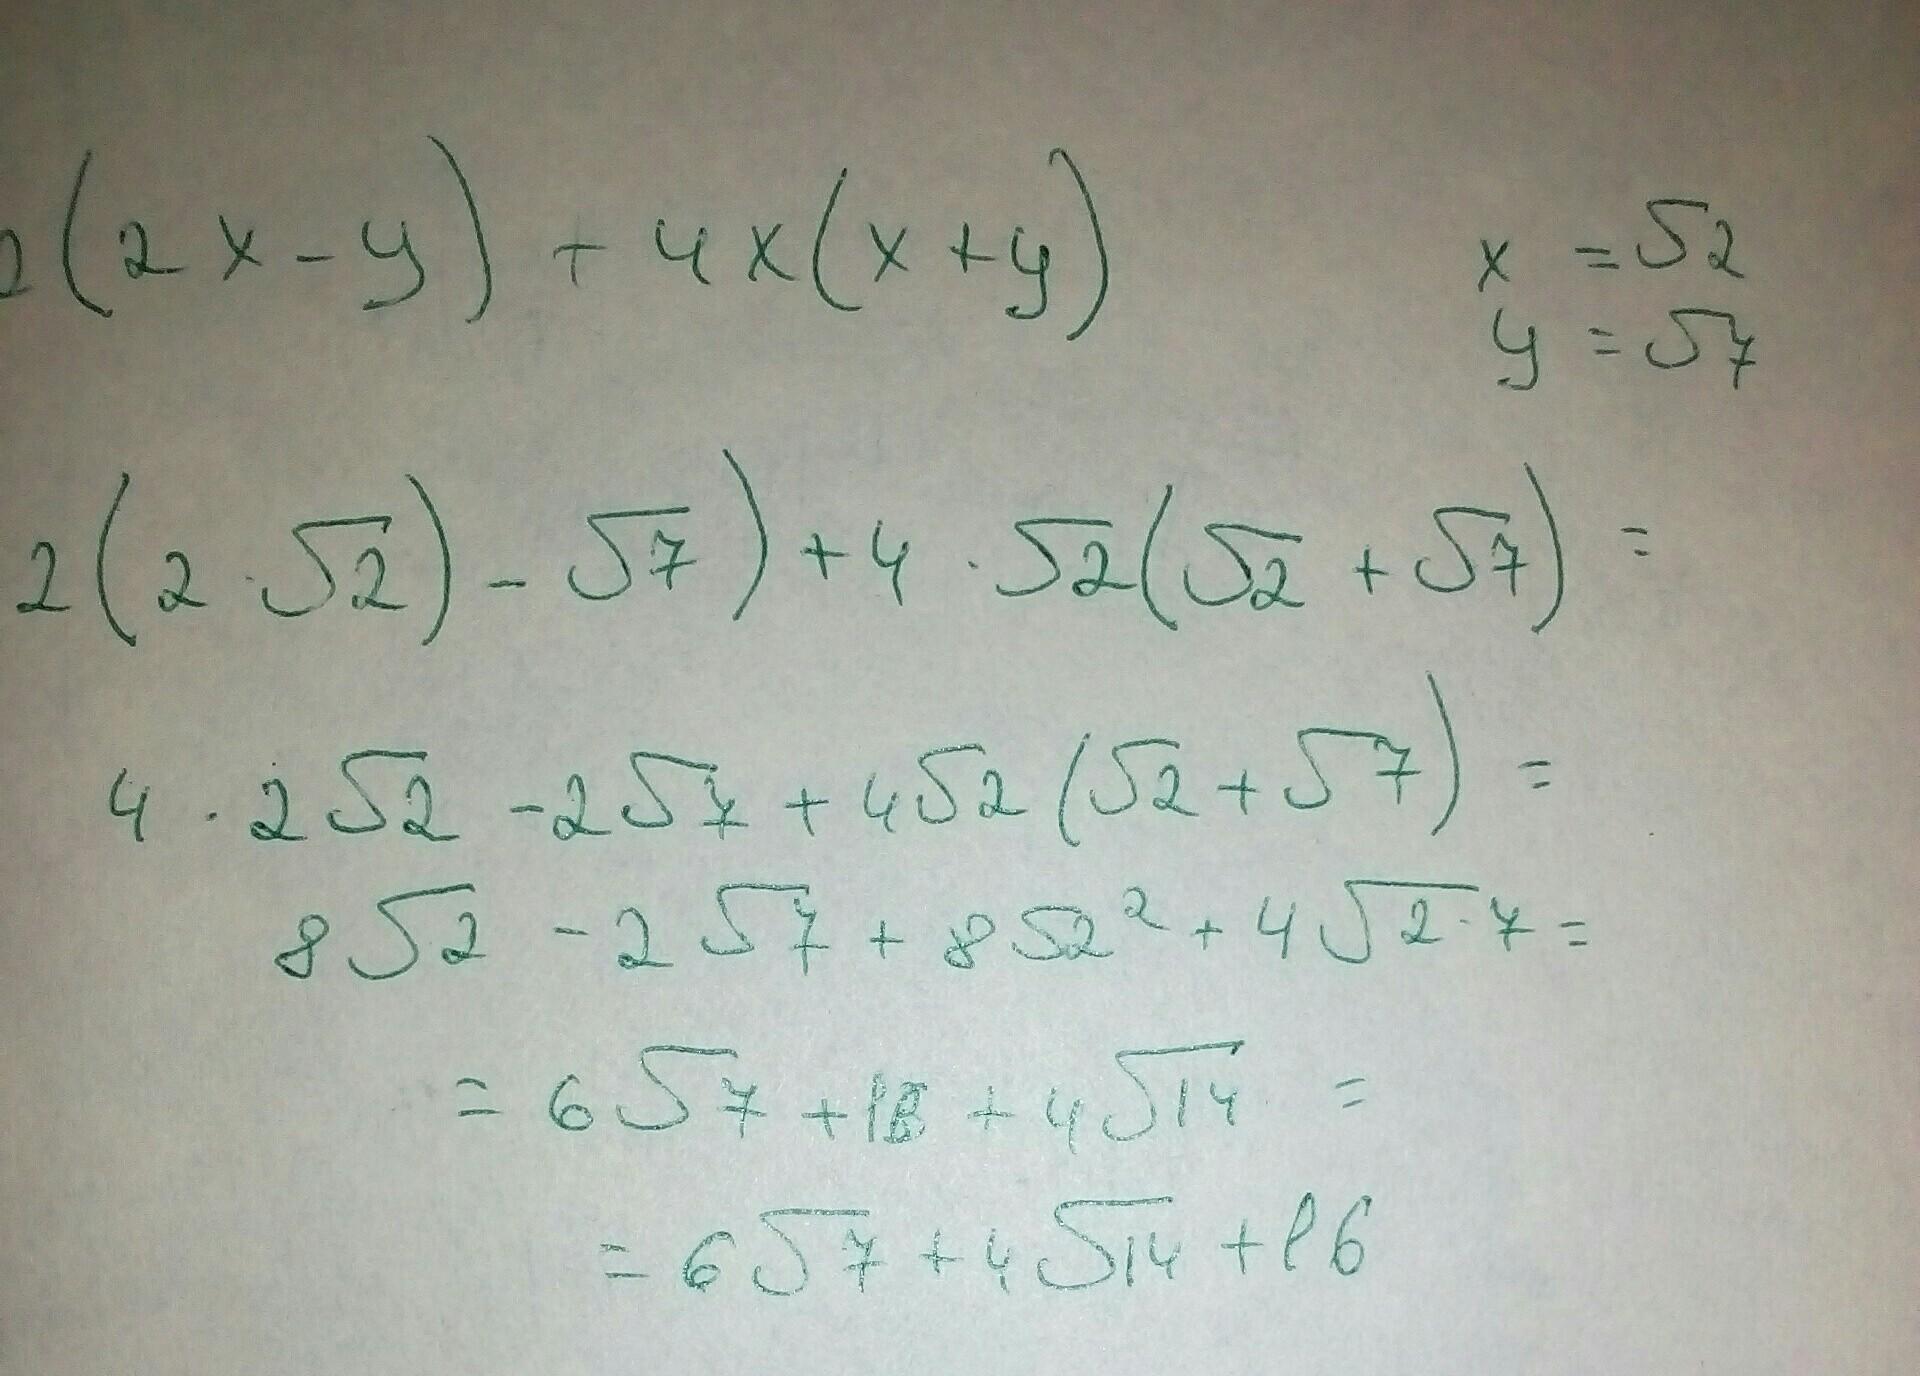 2(2x-y) + 4x(x+y)
x = √2
y = √7
2(2·√2) - √7) + 4 · √2(√2 + √7) =
4 · 2√2 - 2√7 + 4√2 (√2 + √7) =
8√2 - 2√7 + 8√2² + 4√2·7 =
= 6√7 + 16 + 4√14 =
= 6√7 + 4√14 + 16